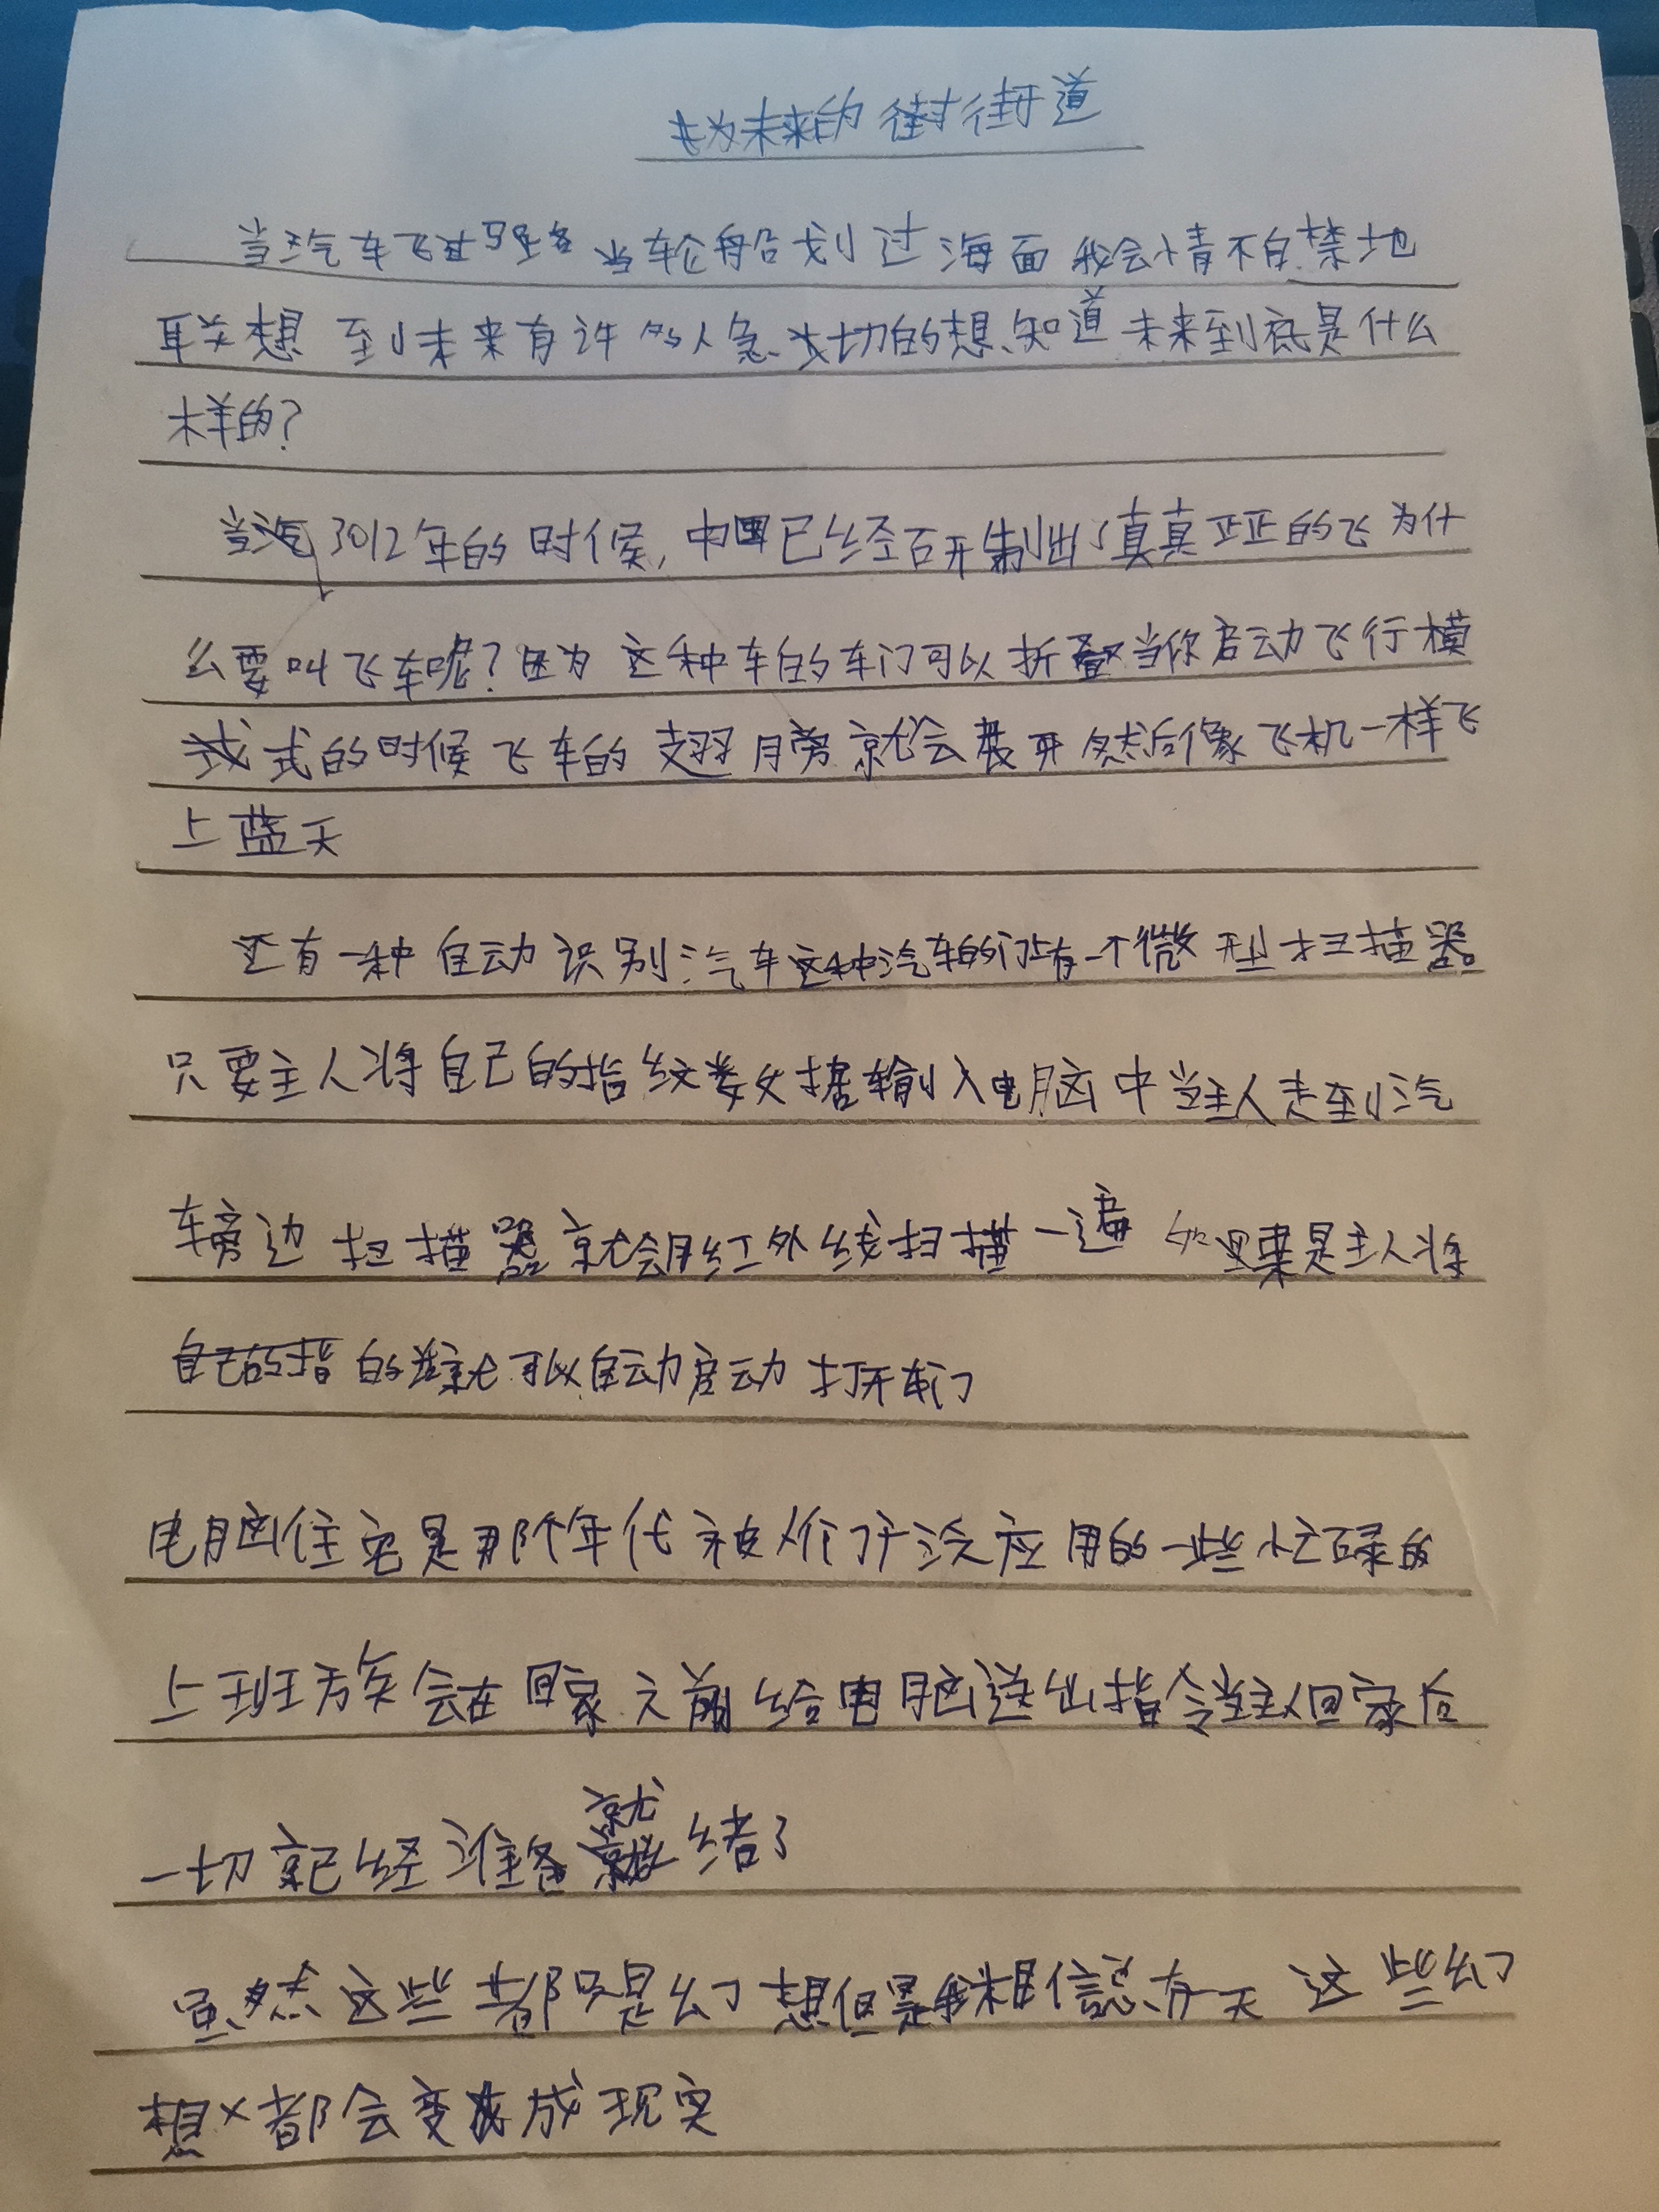 未来的街道
当汽车飞过马路 当轮船划过海面 我会情不自禁地
联想到未来有许多人急切的想知道未来到底是什么
样的？
当 3012年的时候，中国已经研制出了真真正正的飞为什
么要叫飞车呢？因为这种车的车门可以折叠当你启动飞行模
式的时候飞车的翅膀就会展开然后像飞机一样飞
上蓝天
还有一种自动识别汽车这种汽车的门上有一个微型扫描器
只要主人将自己的指纹数据输入电脑中当主人走到汽
车旁边扫描器就会用红外线扫描一遍如果是主人将
自己的指的就可以自动启动打开车门
电脑住宅是那个年代被人们广泛应用的一些忙碌的
上班族会在回家之前给电脑送出指令当主人回家后
一切 已经准备就绪了
虽然这些都只是幻想但是我相信总有一天这些幻
想都会变成现实